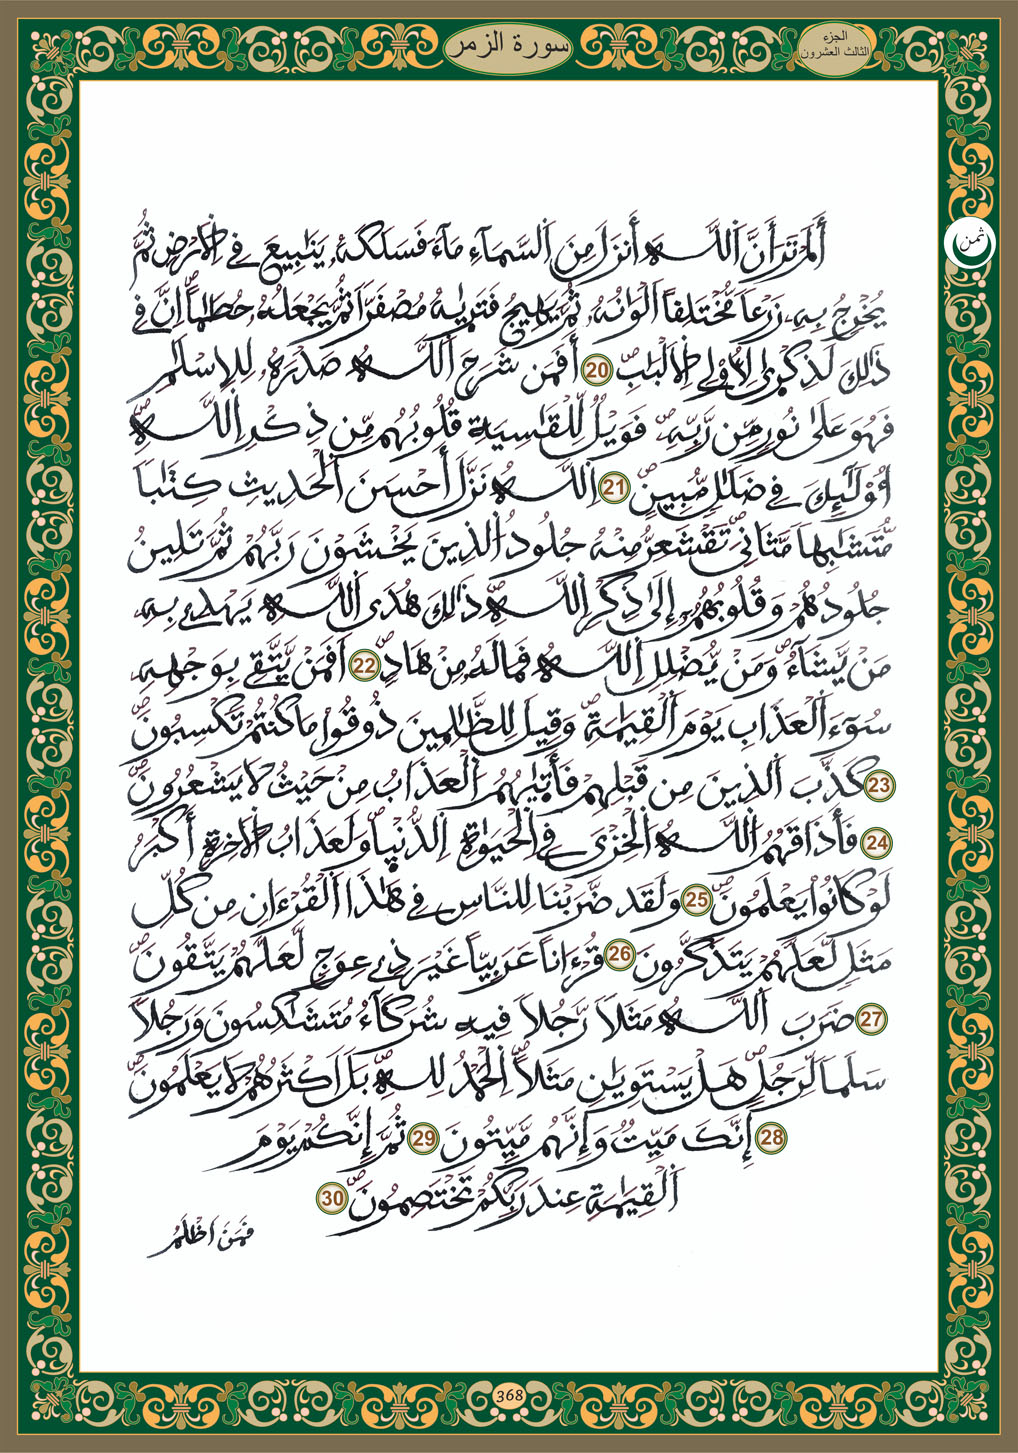 سورة الزمر
الجزء
الثالث العشرون
ثمن
أَلَمْ تَرَ أَنَّ اَ۬للَّهَ أَنزَلَ مِنَ اَ۬لسَّمَآءِ مَآءٗ فَسَلَكَهُۥ يَنَٰبِيعَ فِے اِ۬لَارْضِ ثُمَّ
يُخْرِجُ بِهِۦ زَرْعاٗ مُّخْتَلِفاً اَلْوَٰنُهُۥ ثُمَّ يَهِيجُ فَتَر۪يٰهُ مُصْفَرّاٗ ثُمَّ يَجْعَلُهُۥ حُطَٰماًۖ اِنَّ فِے
ذَٰلِكَ لَذِكْر۪ىٰ لِأُوْلِے اِ۬لَالْبَٰبِۖ 20 أَفَمَن شَرَحَ اَ۬للَّهُ صَدْرَهُۥ لِلِاسْلَٰمِ
فَهُوَ عَلَىٰ نُورٖ مِّن رَّبِّهِۦۖ فَوَيْلٞ لِّلْقَٰسِيَةِ قُلُوبُهُم مِّن ذِكْرِ اِ۬للَّهِۖ
أُوْلَٰٓئِكَ فِے ضَلَٰلٖ مُّبِينٍۖ 21 اِ۬للَّهُ نَزَّلَ أَحْسَنَ اَ۬لْحَدِيثِ كِتَٰباٗ
مُّتَشَٰبِهاٗ مَّثَانِيَۖ تَقْشَعِرُّ مِنْهُ جُلُودُ اُ۬لذِينَ يَخْشَوْنَ رَبَّهُمْ ثُمَّ تَلِينُ
جُلُودُهُمْ وَقُلُوبُهُمُۥٓ إِلَىٰ ذِكْرِ اِ۬للَّهِۖ ذَٰلِكَ هُدَى اَ۬للَّهِ يَهْدِے بِهِۦ
مَنْ يَّشَآءُۖ وَمَنْ يُّضْلِلِ اِ۬للَّهُ فَمَا لَهُۥ مِنْ هَادٍۖ 22 اَفَمَنْ يَّتَّقِے بِوَجْهِهِۦ
سُوٓءَ اَ۬لْعَذَابِ يَوْمَ اَ۬لْقِيَٰمَةِۖ وَقِيلَ لِلظَّٰلِمِينَ ذُوقُواْ مَا كُنتُمْ تَكْسِبُونَۖ
23 كَذَّبَ اَ۬لذِينَ مِن قَبْلِهِمْ فَأَت۪يٰهُمُ اُ۬لْعَذَابُ مِنْ حَيْثُ لَا يَشْعُرُونَۖ
24 فَأَذَاقَهُمُ اُ۬للَّهُ اُ۬لْخِزْيَ فِے اِ۬لْحَيَوٰةِ اِ۬لدُّنْي۪اۖ وَلَعَذَابُ اُ۬لَاخِرَةِ أَكْبَرُ
لَوْ كَانُواْ يَعْلَمُونَۖ 25 وَلَقَد ضَّرَبْنَا لِلنَّاسِ فِے هَٰذَا اَ۬لْقُرْءَانِ مِن كُلِّ
مَثَلٖ لَّعَلَّهُمْ يَتَذَكَّرُونَ 26 قُرْءَاناً عَرَبِيّاً غَيْرَ ذِے عِوَجٖ لَّعَلَّهُمْ يَتَّقُونَۖ
27 ضَرَبَ اَ۬للَّهُ مَثَلاٗ رَّجُلاٗ فِيهِ شُرَكَآءُ مُتَشَٰكِسُونَ وَرَجُلاٗ
سَلَماٗ لِّرَجُلٍۖ هَلْ يَسْتَوِيَٰنِ مَثَلاًۖ اِ۬لْحَمْدُ لِلهِۖ بَلَ اَكْثَرُهُمْ لَا يَعْلَمُونَۖ
28 إِنَّكَ مَيِّتٞ وَإِنَّهُم مَّيِّتُونَ 29 ثُمَّ إِنَّكُمْ يَوْمَ
اَ۬لْقِيَٰمَةِ عِندَ رَبِّكُمْ تَخْتَصِمُونَۖ 30
فَمَنَ اَظْلَمُ
368